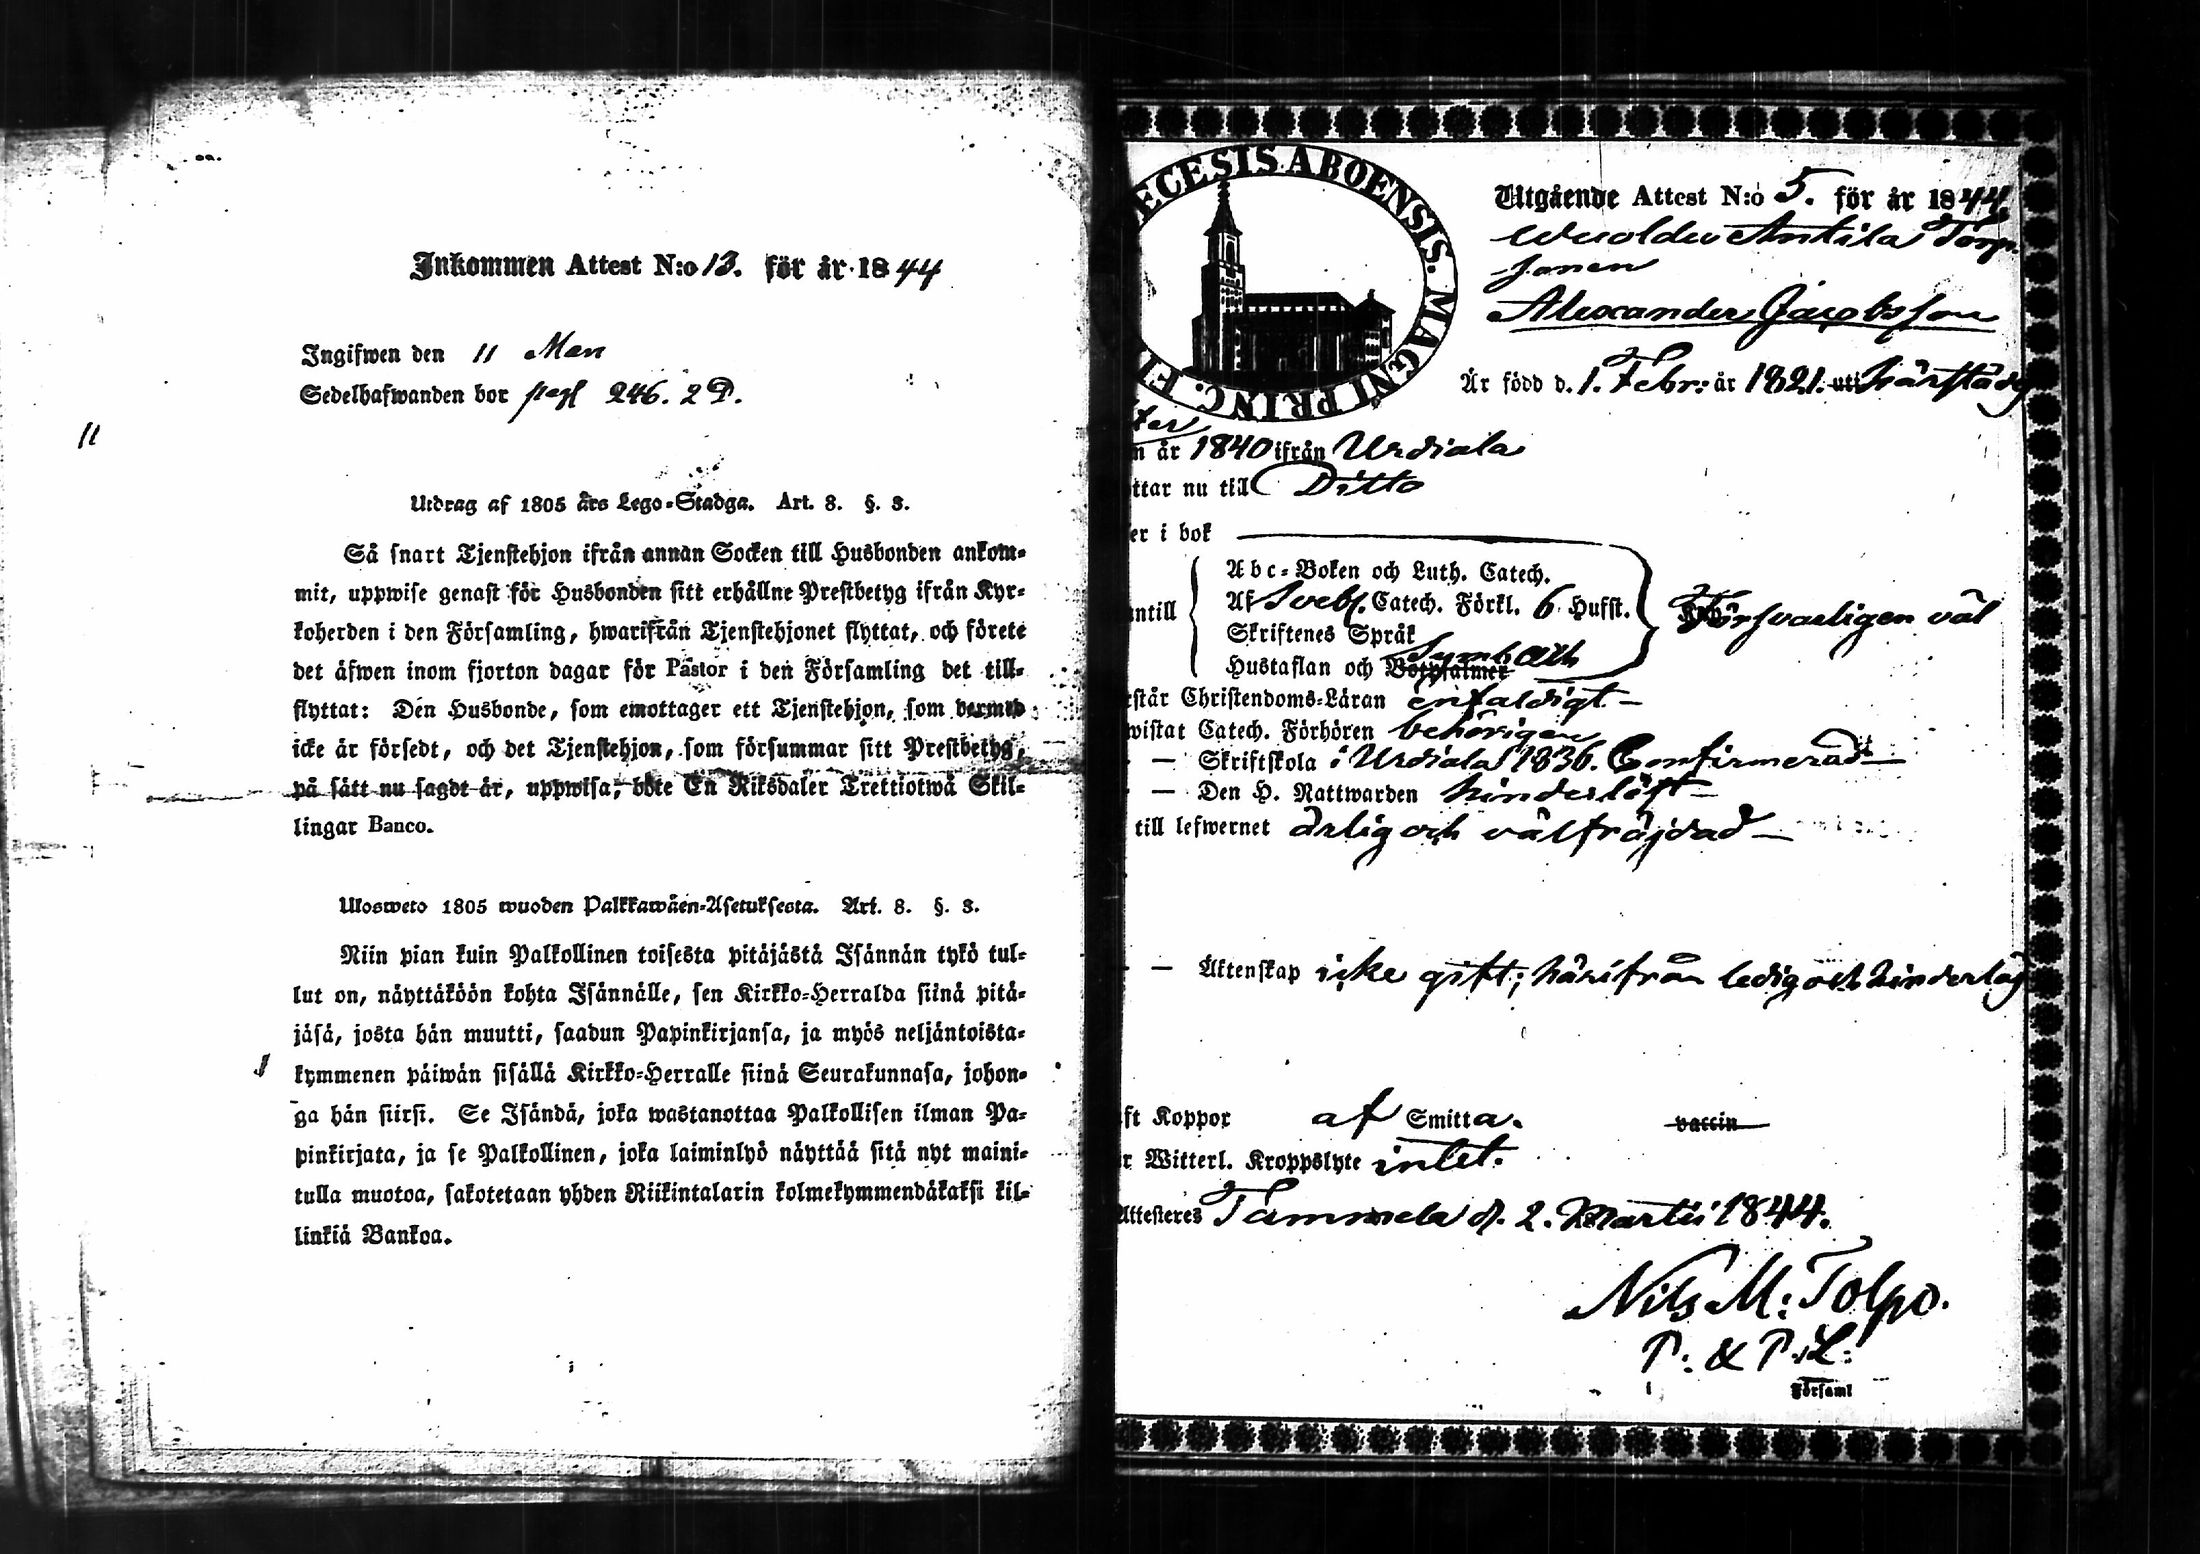 Inkommen Attest N:o 13. för år 1844
Ingifwen den 11 Mars
Sedelhafwanden bor pag 246. 2 D.
11
Utdrag af 1805 års Lego-Stadga. Art. 8. §. 3.
Så snart Tjenstehjon ifrån annan Socken till Husbonden ankom-
mit, uppwise genast för Husbonden sitt erhållne Prestbetyg ifrån Kyr-
koherden i den Församling, hwarifrån Tjenstehjonet flyttat, och förete
det äfwen inom fjorton dagar för Pastor i den Församling det till-
flyttat: Den Husbonde, som emottager ett Tjenstehjon, som dermed
icke är försedt, och det Tjenstehjon, som försummar sitt Prestbetyg,
på sätt nu sagdt är, uppwisa, böte En Riksdaler Trettiotwå Skil-
lingar Banco.
Ulosweto 1805 wuoden Palkkawäen-Asetuksesta. Art. 8. §. 3.
Niin pian kuin Palkollinen toisesta pitäjästä Isännän tykö tul-
lut on, näyttäköön kohta Isännälle, sen Kirkko-Herralda siinä pitä-
jäsä, josta hän muutti, saadun Papinkirjansa, ja myös neljäntoista-
kymmenen päiwän sisällä Kirkko-Herralle siinä Seurakunnasa, johon-
ga hän siirsi. Se Isändä, joka wastanottaa Palkollisen ilman Pa-
pinkirjata, ja se Palkollinen, joka laiminlyö näyttää sitä nyt maini-
tulla muotoa, sakotetaan yhden Riikintalarin kolmekymmendäkaksi kil-
linkiä Bankoa.
ECESIS ABOENSIS. MAGNI PRINC. FI
Utgående Attest N:o 5. för år 1844.
Antila Torp
sonen
Alexander Jacobsson
Är född d. 1. Febr: år 1821. uti härstädes
ter
n år 1840 ifrån Urdiala
ttar nu till Ditto
er i bok
Abc-Boken och Luth. Catech.
Af Svebl. Catech. Förkl. 6 Hufst.
ntill
Försvarligen väl
Skriftenes Språk
Symb Ath
Hustaflan och Botpsalmer
rstår Christendoms-Läran enfaldigt
wistat Catech. Förhören behörigen
— Skriftskola i Urdiala 1836. Confirmerad
— Den H. Nattwarden hinderlöst
till lefwernet ärlig och välfräjdad
— Äktenskap icke gift; härifrån ledig och hinderlös
ft Koppor af Smitta. vaccin
r Witterl. Kroppslyte intet.
Attesteres Tammela d. 2. Martii 1844.
Nils M: Tolpo.
P: & P. L:
Församl